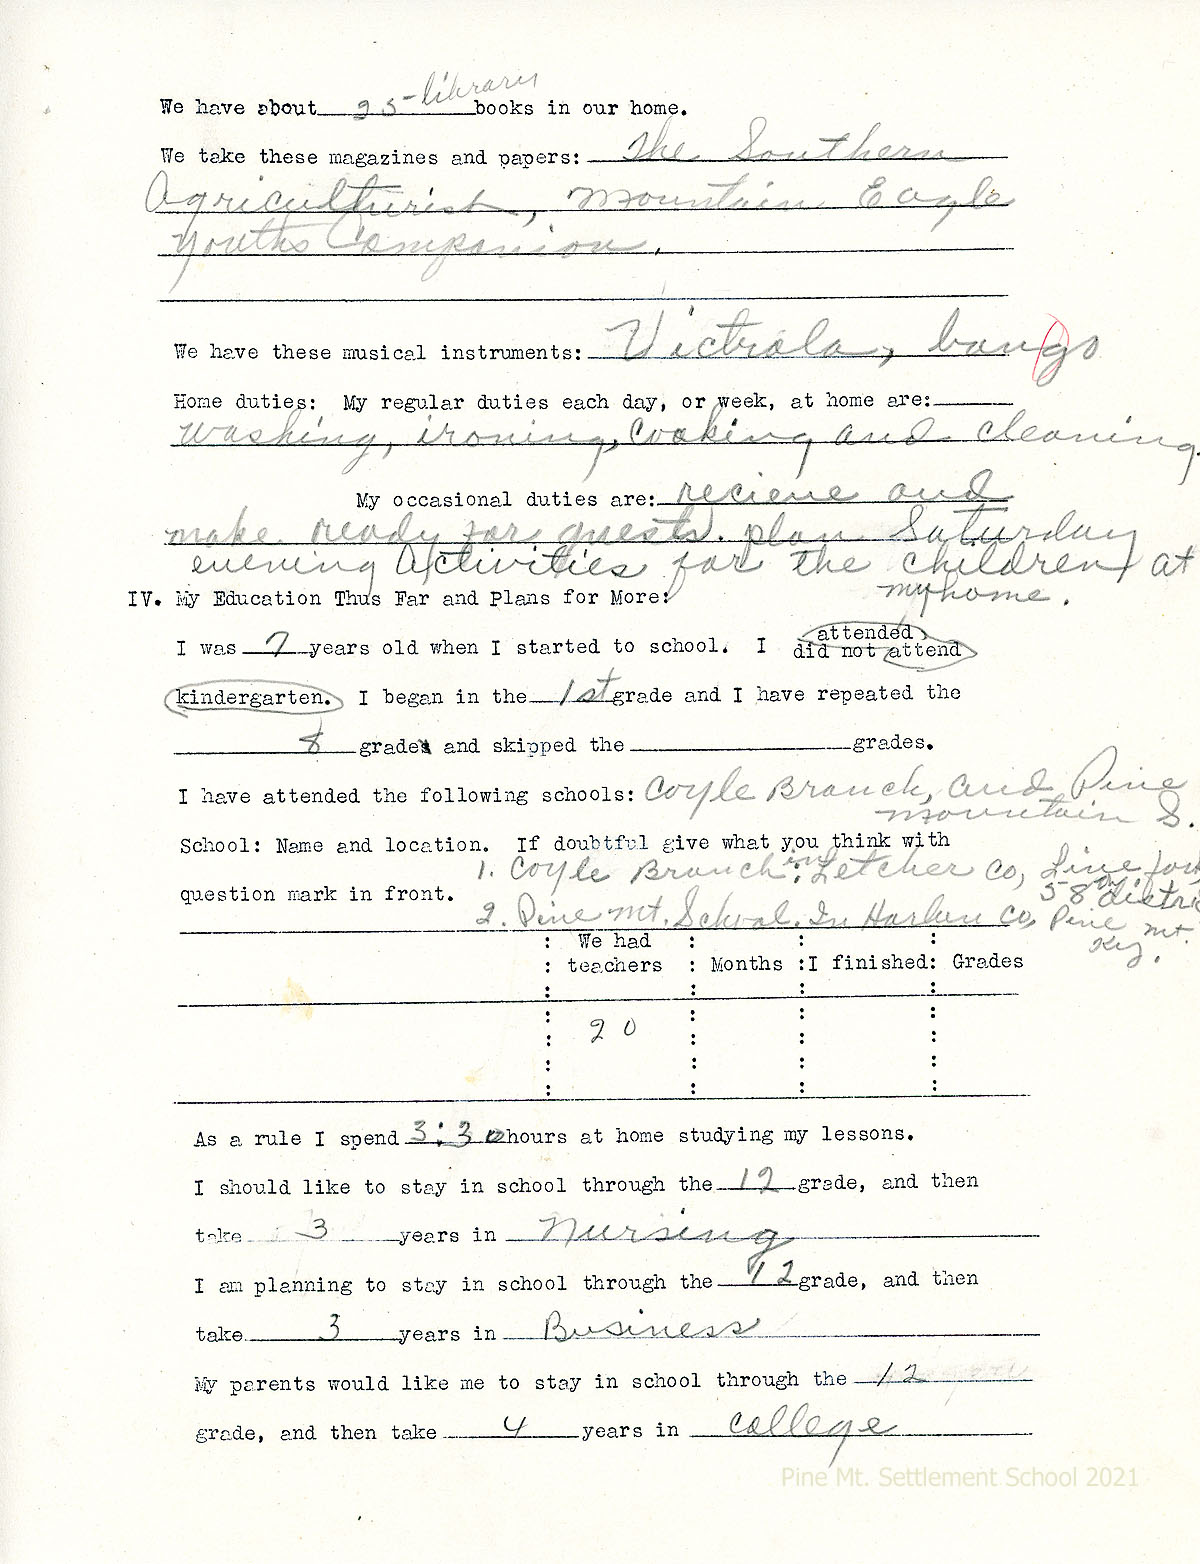 We have about 25-library books in our home.
We take these magazines and papers: The Southern
Agriculturist, Mountain Eagle
Youths Companion.
We have these musical instruments: Victrola, bango
Home duties: My regular duties each day, or week, at home are:
Washing, ironing, Cooking and cleaning.
My occasional duties are: recieve and
make ready for guests. plan Saturday
evening Activities for the children at
my home.
IV. My Education Thus Far and Plans for More:
I was 7 years old when I started to school. I attended
did not attend
kindergarten. I began in the 1st grade and I have repeated the
8 grades and skipped the grades.
I have attended the following schools: Coyle Branch, and Pine
Mountain S.
School: Name and location. If doubtful give what you think with
1. Coyle Branch in Letcher Co, Line fork
question mark in front.
58 district
2. Pine Mt. School. In Harlan Co, Pine Mt.
Ky.
We had
teachers : Months : I finished : Grades
20
As a rule I spend 3:30 hours at home studying my lessons.
I should like to stay in school through the 12 grade, and then
take 3 years in Nursing
I am planning to stay in school through the 12 grade, and then
take 3 years in Business
My parents would like me to stay in school through the 12
grade, and then take 4 years in college
Pine Mt. Settlement School 2021